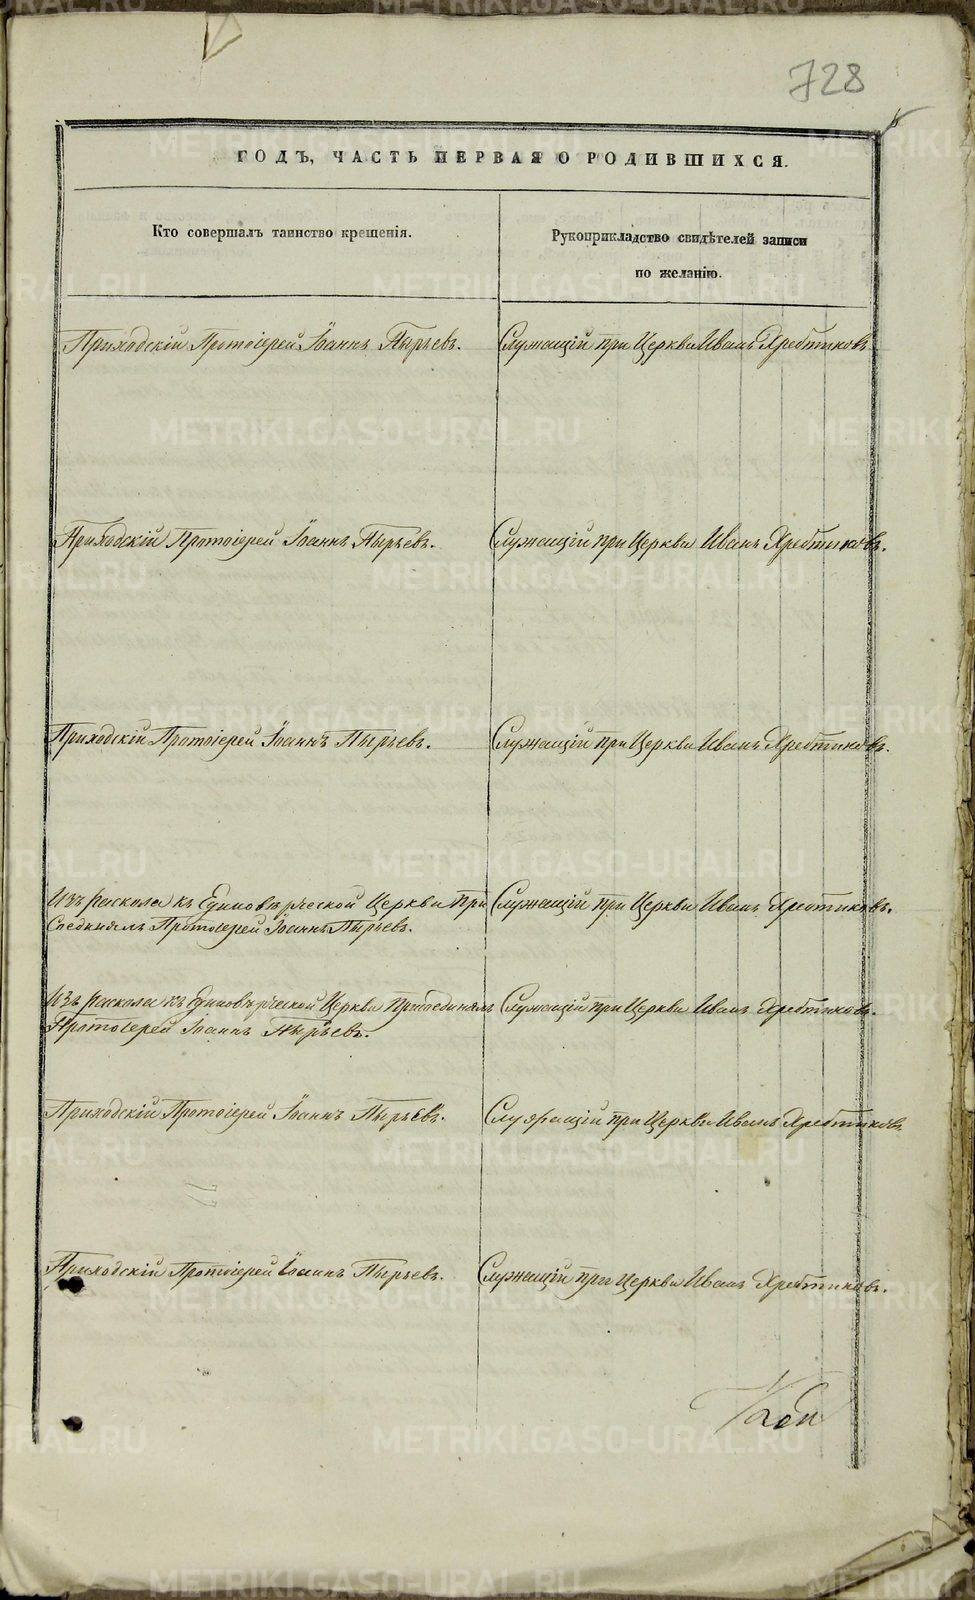 728
ГОДЪ, ЧАСТЬ ПЕРВАЯ О РОДИВШИХСЯ.
Кто совершалъ таинство крещенія.
Рукоприкладство свидѣтелей записи
по желанію.
Приходскій Протоіерей Іоаннъ Пырьевъ.
Служащій при Церкви Иванъ Хребтиковъ
Приходскій Протоіерей Іоаннъ Пырьевъ.
Служащій при Церкви Иванъ Хребтиковъ.
Приходскій Протоіерей Іоаннъ Пырьевъ.
Служащій при Церкви Иванъ Хребтиковъ.
Изъ раскола къ Единовѣрческой Церкви При
Соединялъ Протоіерей Іоаннъ Пырьевъ.
Служащій при Церкви Иванъ Хребтиковъ.
Изъ раскола къ Единовѣрческой Церкви Присоединялъ
Протоіерей Іоаннъ Пырьевъ.
Служащій при Церкви Иванъ Хребтиковъ.
Приходскій Протоіерей Іоаннъ Пырьевъ.
Служащій при Церкви Иванъ Хребтиковъ
Приходскій Протоіерей Іоаннъ Пырьевъ.
Служащій при Церкви Иванъ Хребтиковъ.
METRIKI.GASO-URAL.RU